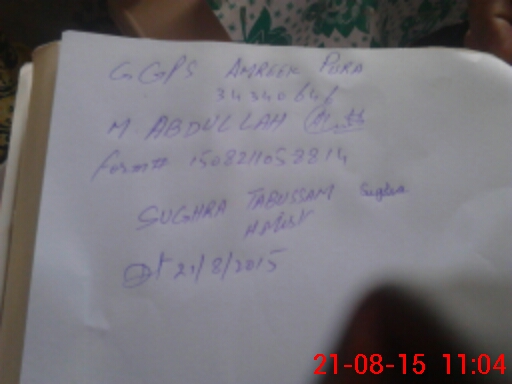 G.GPS AMREEK PURA
34340646
M. ABDULLAH
form# 1508211058814
SUGHRA TABUSSAM Sughra
H.Mist
Dt 21/8/2015
21-08-15 11:04